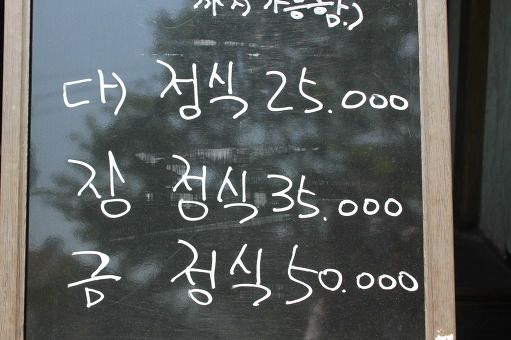 까지 가능함.)
다) 정식 25.000
장 정식 35.000
금 정식 50.000